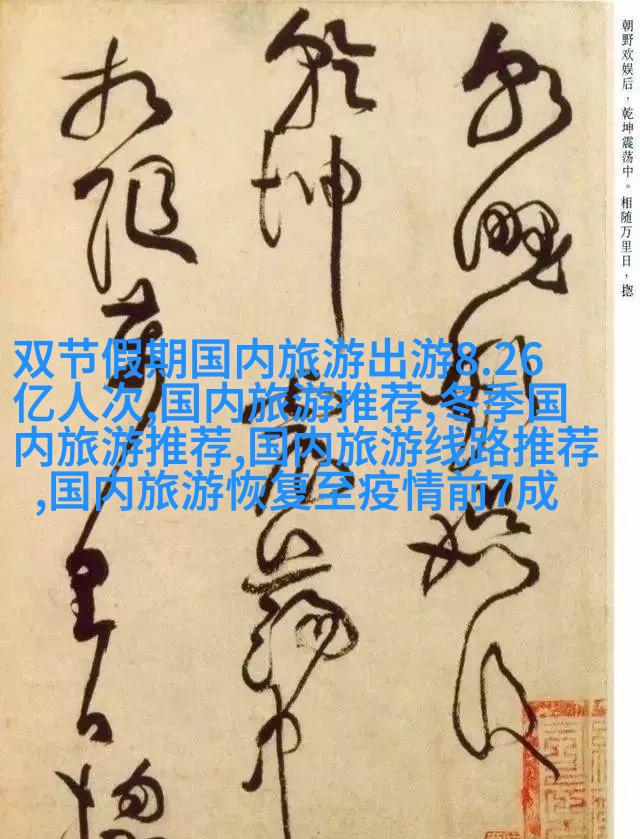 朝野欢娱后，乾坤震荡中。相随万里日，揔
朝野歡娛後
乾坤震蕩中
相隨萬里日揔
双节假期国内旅游出游8.26
亿人次,国内旅游推荐,冬季国
内旅游推荐,国内旅游线路推荐
,国内旅游恢复至疫情前7成